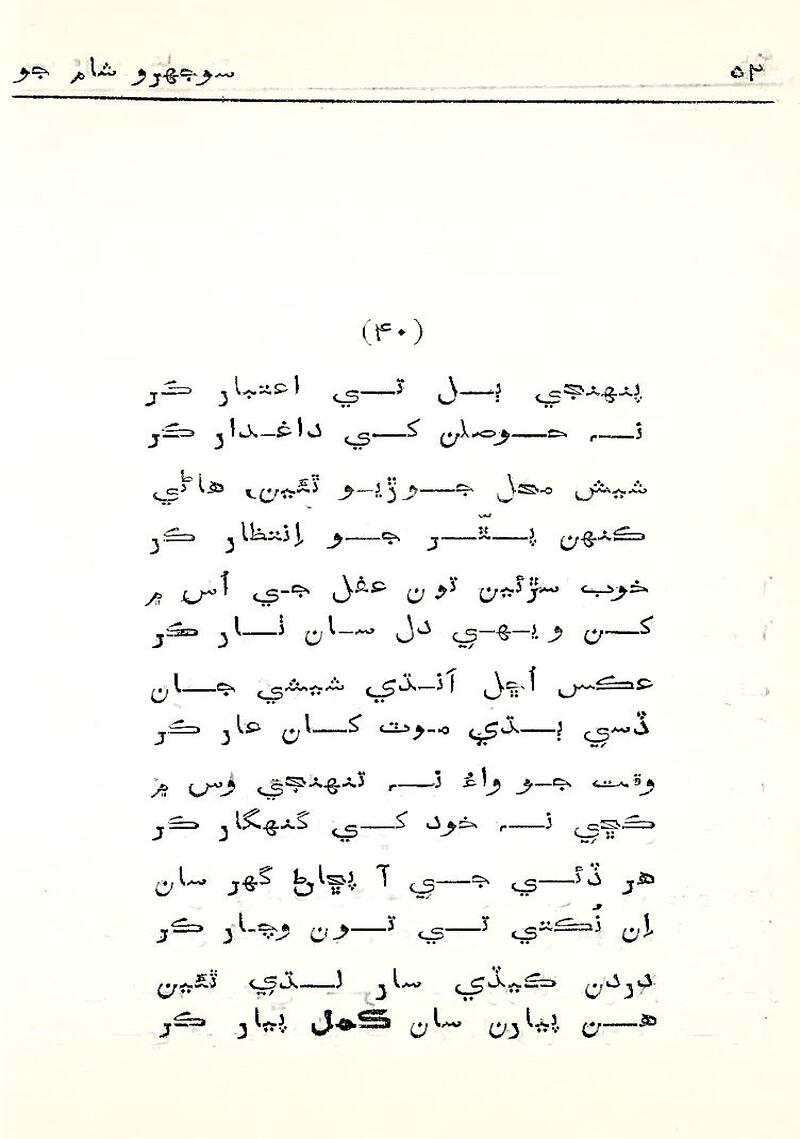 ۵۲
سوجهرو شام جو
(۴۰)
پنهنجي ٻل تي اعتبار ڪر
نہ حوصلن کي داغدار ڪر
شيش محل جوڙيو ٿئين، هاڻي
ڪنهن پٿر جو اِنتظار ڪر
خوب سڙئين تون عقل جي اُس ۾
کن ويهي دل سان ٺار ڪر
عڪس اُڇل آندي شيشي جان
ڏسي ٻڌي موت کان عار ڪر
وقت جو واءُ نہ تنهنجي وَس ۾
ڪڇي نہ خود کي گنهگار ڪر
هر ڏئي جي آ پڇاڻ گهر سان
اِن نُڪتي تي تون وچار ڪر
دردن ڪيڏي سار لڌي ٿئين
هن پيارن سان ڪمل پيار ڪر